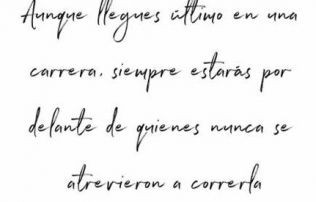 Aunque llegues último en una
carrera, siempre estarás por
delante de quienes nunca se
atrevieron a correrla